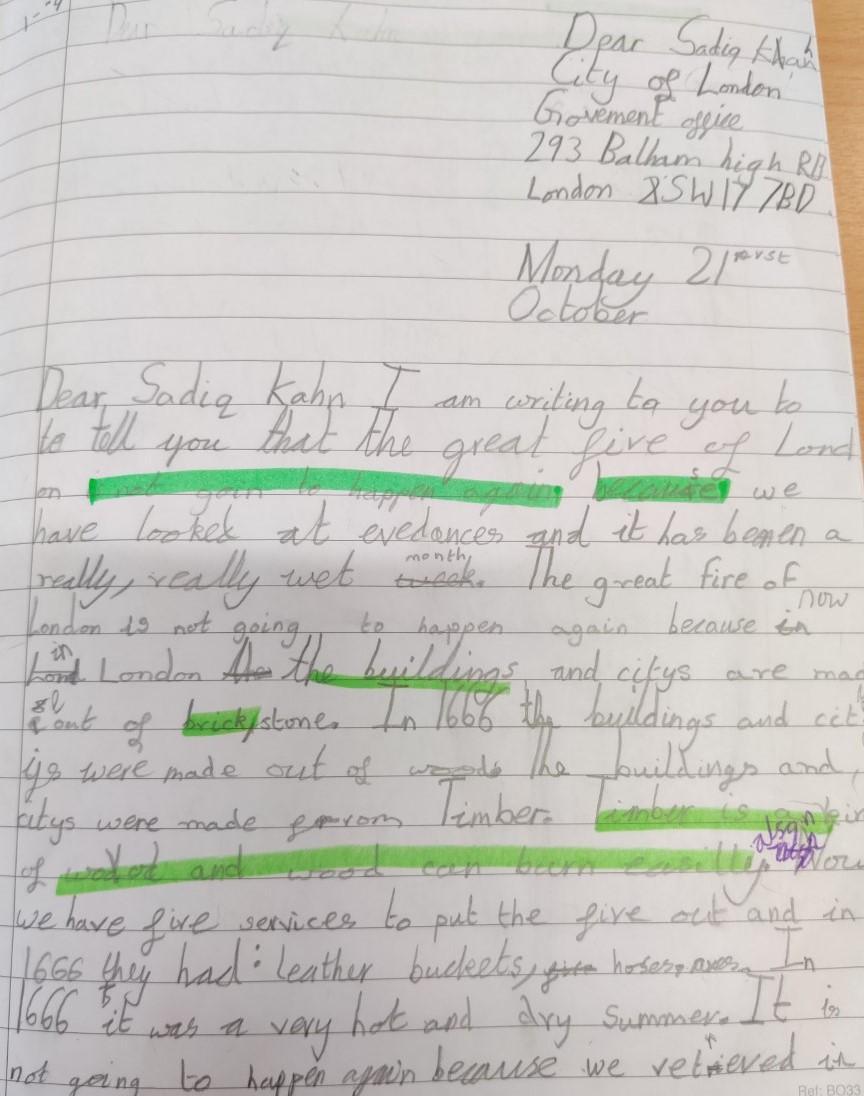 Dear Sadiq Kahn
Dear Sadiq Khan
City of London
Grovement office
293 Balham high RD
London SW17 7BD
Monday 21st
October
Dear Sadiq Kahn I am writing to you to
to tell you that the great fire of Lond
on not goin to happen again because we
have looked at evedances and it has been a
month
really, really wet week. The great fire of
now
London is not going to happen again because in
in
London the buildings and citys are mad
out of brick/stone. In 1666 the buildings and cit
ys were made out of woods the buildings and,
citys were made from Timber. Timber is a
of wood and wood can burn easilly. Now
we have fire services to put the fire out and in
1666 they had: leather buckets, fire hoses, axes. In
1666 it was a very hot and dry summer. It is
not going to happen again because we retrieved in
Ref: BO33